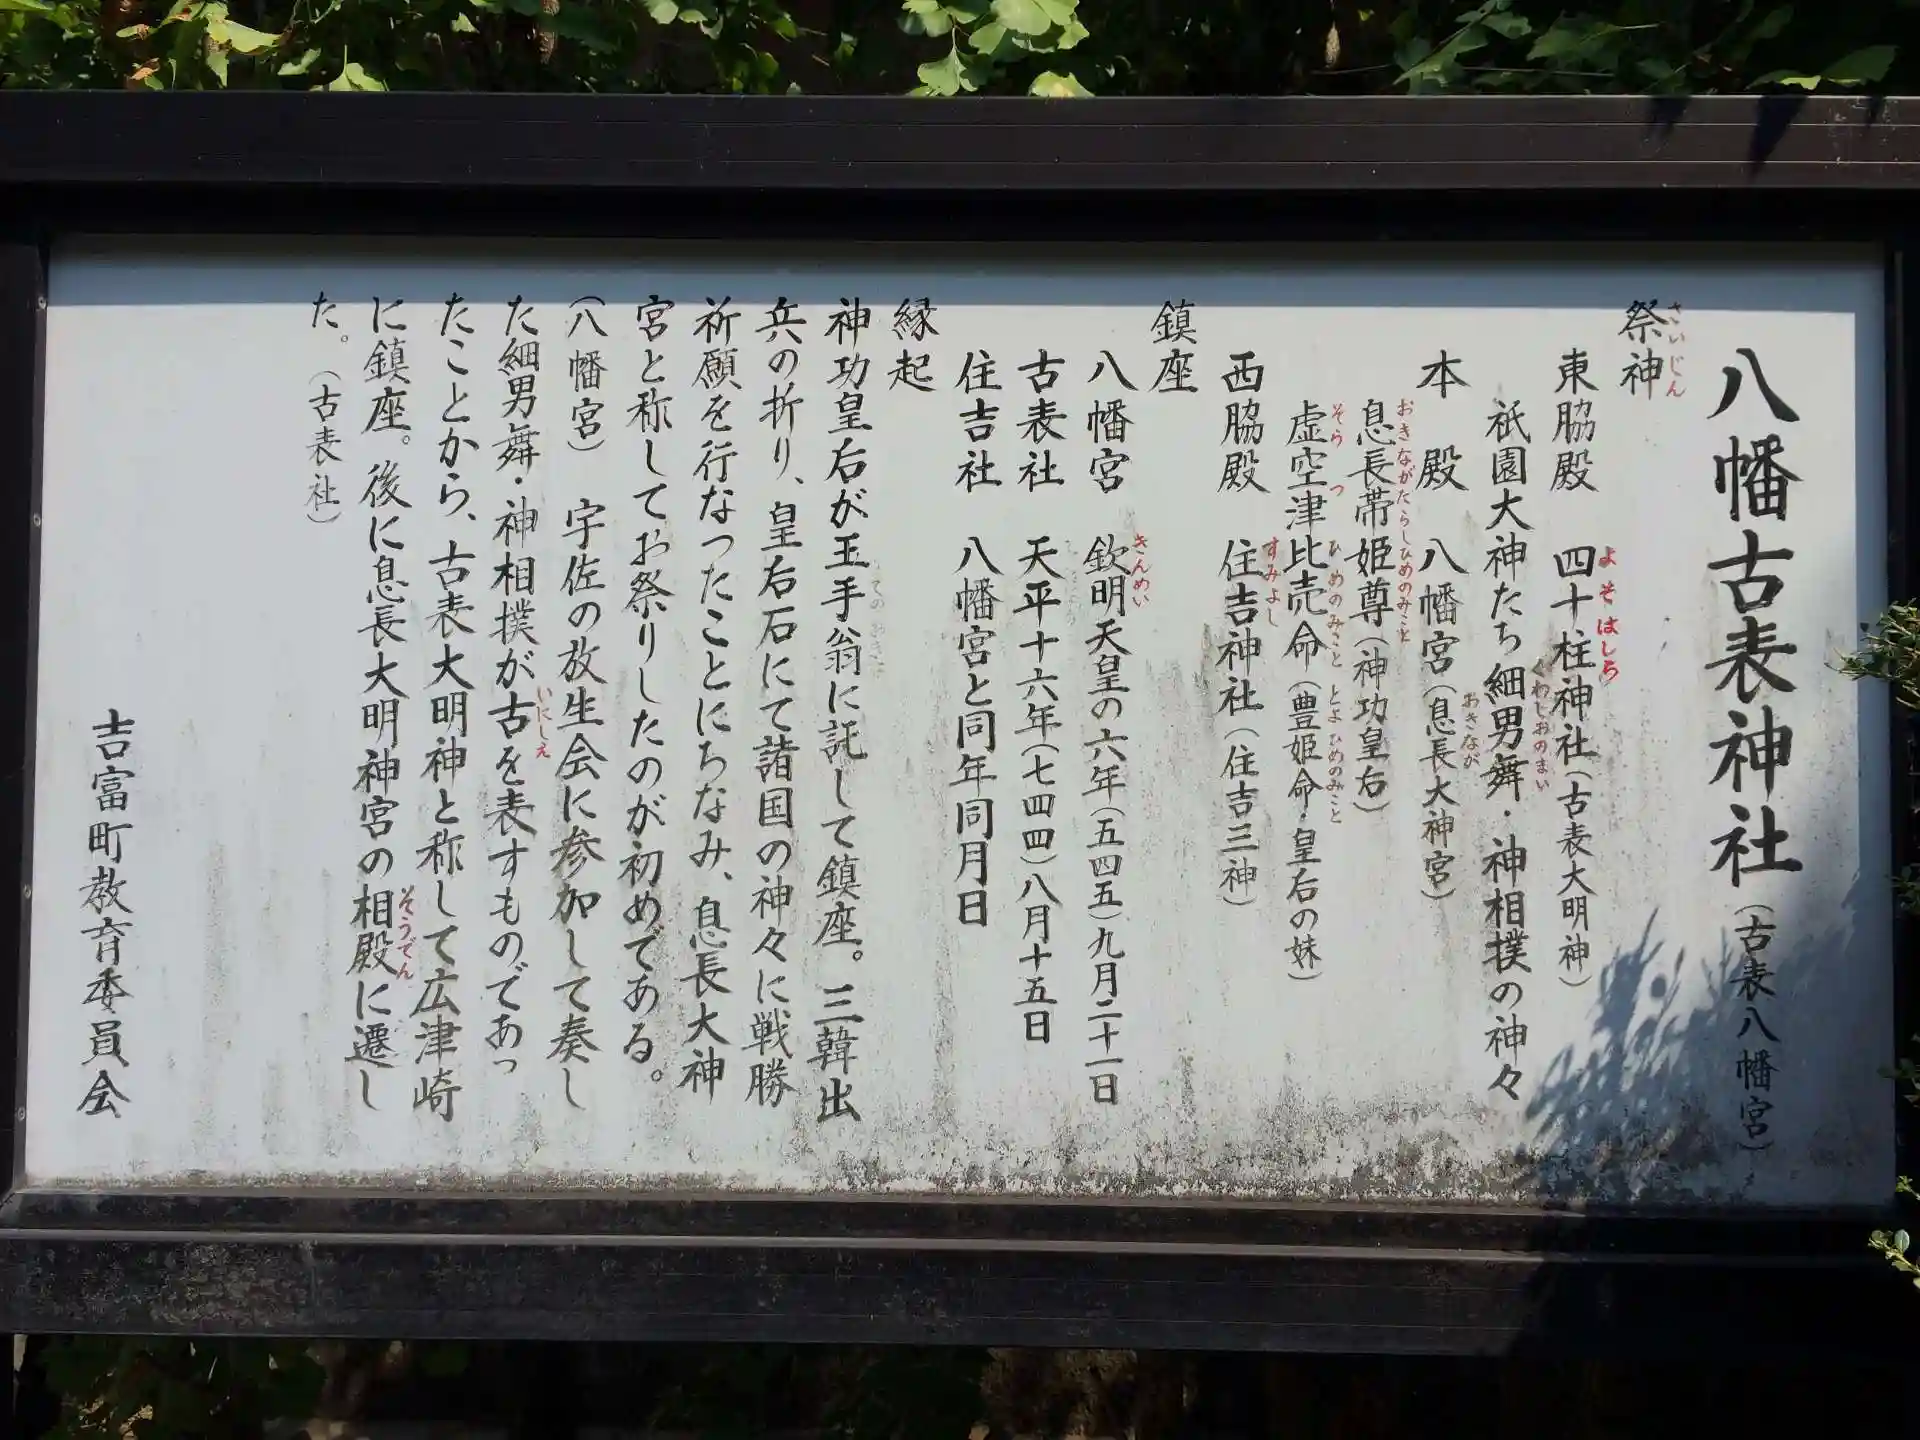 八幡古表神社（古表八幡宮）
祭神
東脇殿　四十柱神社（古表大明神）
祇園大神たち細男舞・神相撲の神々
本殿　八幡宮（息長大神宮）
息長帯姫尊（神功皇后）
虚空津比売命（豊姫命・皇后の妹）
西脇殿　住吉神社（住吉三神）
鎮座
八幡宮　欽明天皇の六年（五四五）九月二十一日
古表社　天平十六年（七四四）八月十五日
住吉社　八幡宮と同年同月日
縁起
神功皇后が玉手翁に託して鎮座。三韓出
兵の折り、皇后石にて諸国の神々に戦勝
祈願を行なったことにちなみ、息長大神
宮と称してお祭りしたのが初めである。
（八幡宮）　宇佐の放生会に参加して奏し
た細男舞・神相撲が古を表すものであっ
たことから、古表大明神と称して広津崎
に鎮座。後に息長大明神宮の相殿に遷し
た。（古表社）
吉富町教育委員会